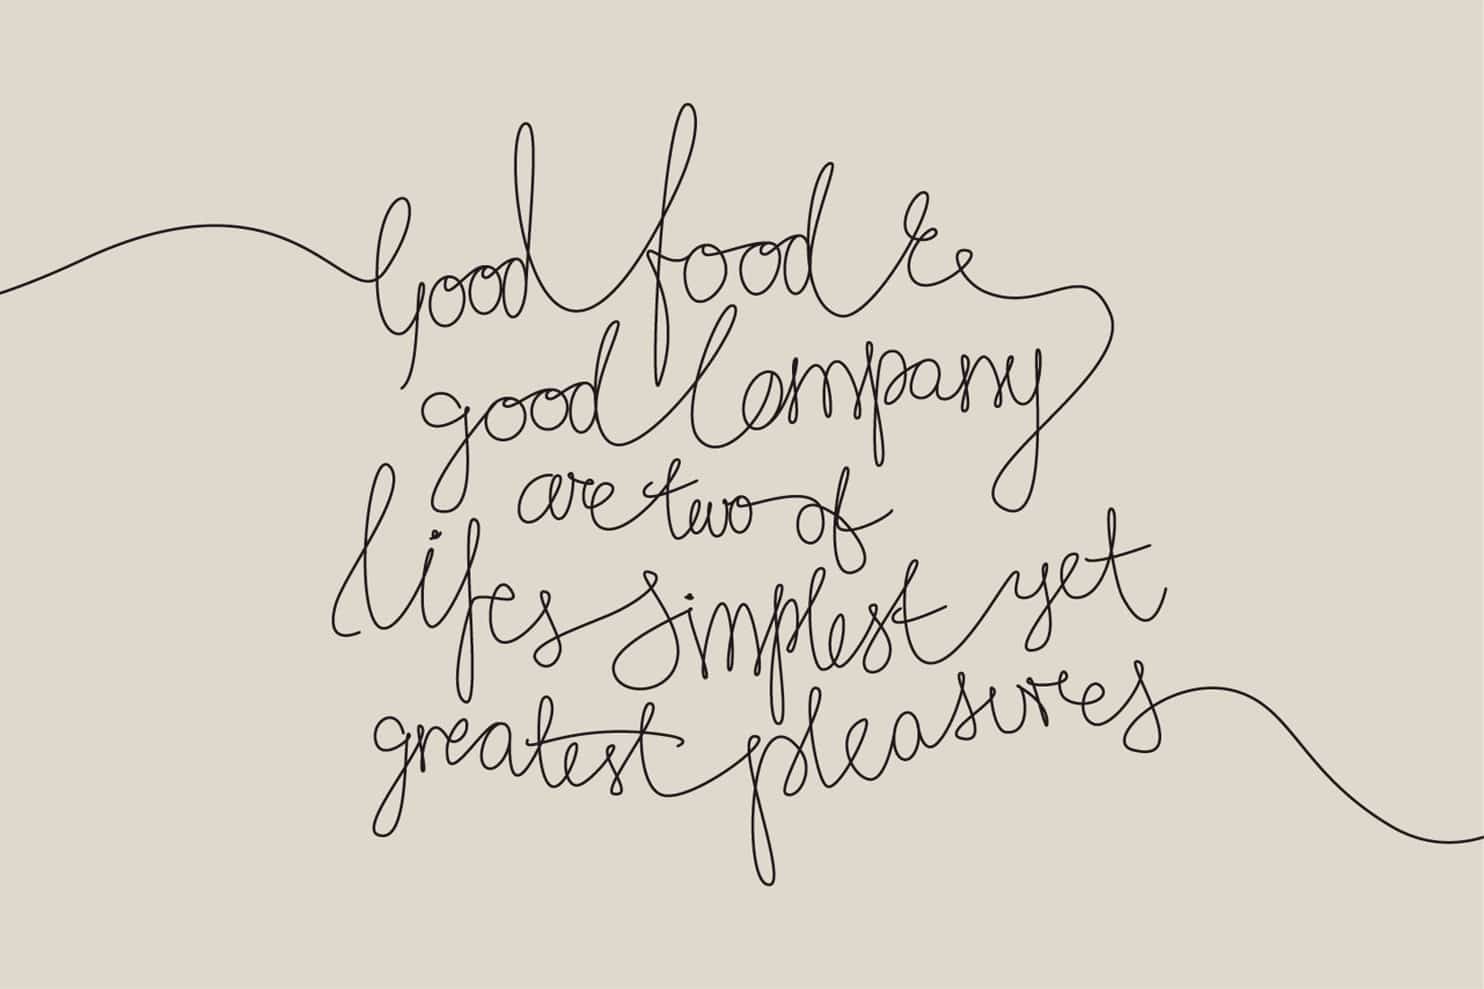 Good food &
good Company
are two of
lifes simplest yet
greatest pleasures